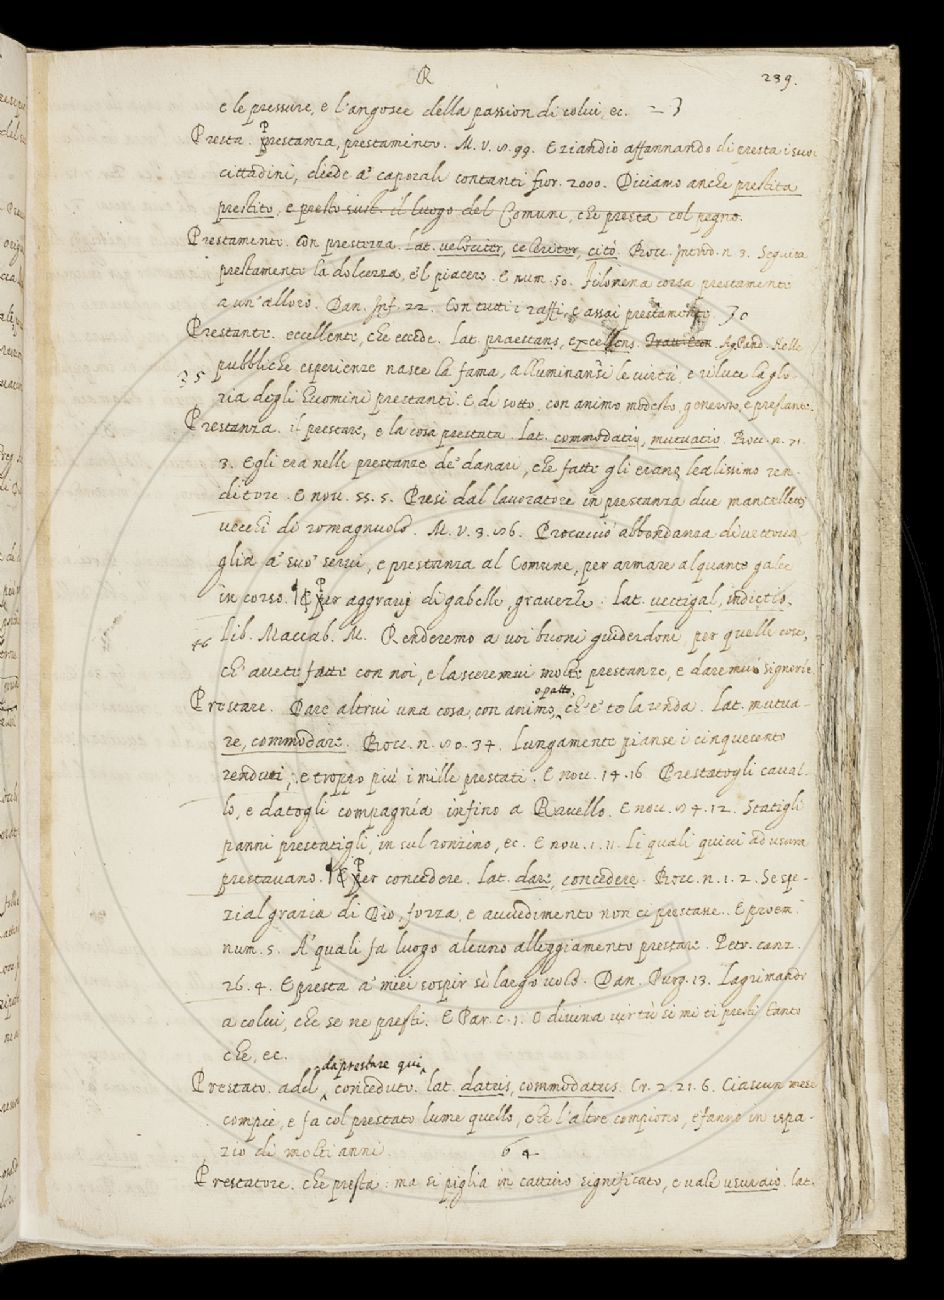 R 239.
e le pressure, e l'angosce della passion di colui, ec. = 3
Presta. Prestanza, prestamento. M. V. 10. 99. Eziandio affannando di presta i suoi
cittadini, diede a' caporali contanti fior. 2000. Diciamo anche prestita
prestito, e presto sust. il luogo del Comune, che presta col pegno.
Prestamente. Con prestezza. Lat. velociter, celeriter, citò. Bocc. Introd. n. 3. Seguita
prestamente la dolcezza, e 'l piacere. E num. 50. Filomena corsa prestamente
a un' alloro. Dan. Inf. 22. Con tutti i raffi, e assai prestamente. 30
Prestante. eccellente, che eccede. Lat. praestans, excellens. Ag. Pand. Nelle
35 pubbliche esperienze nasce la fama, alluminansi le virtù, e riluce la glo-
ria degli Huomini prestanti. E di sotto. con animo modesto, generoso, e prestante.
Prestanza. il prestare, e la cosa prestata. Lat. commodatio, mutuatio. Bocc. n. 21.
3. Egli era nelle prestanze de' danari, che fatte gli erano, lealissimo ren-
ditore. E nov. 55. 5. Presi dal lavoratore in prestanza due mantelletti
vecchi di romagnuolo. M. V. 3. 106. Procacciò abbondanza di vettova-
glia a' suo' servi, e prestanza al Comune, per armare alquante galee
in corso. ¶ Per aggravj di gabelle, gravezze. Lat. vectigal, indictio.
46 Lib. Maccab. M. Renderemo a voi buoni guiderdoni per quelle cose,
ch' avete fatte con noi, e lasceremvi molte prestanze, e daremvi signorie
Prestare. Dare altrui una cosa, con animo, o patto, ch' e' te la renda. Lat. mutua-
re, commodare. Bocc. n. 80. 34. Lungamente pianse i cinquecento
renduti, e troppo più i mille prestati. E nov. 14. 16. Prestatogli caval-
lo, e datogli compagnía infino a Ravello. E nov. 84. 12. Statigli
panni prestatigli, in sul ronzino, ec. E nov. 1. 11. Li quali quivi ad usura
prestavano. ¶ Per concedere. Lat. dare, concedere. Bocc. n. 1. 2. Se spe-
zial grazia di Dio, forza, e avvedimento non ci prestasse. E proem.
num. 5. A' quali fa luogo alcuno alleggiamento prestare. Petr. canz.
26. 4. E presta a' miei sospir sì largo volo. Dan. Purg. 13. Lagrimando
a colui, che se ne presti. E Par. c. 1. O divina virtù se mi ti presti tanto
che, ec.
Prestato. add. da prestare qui conceduto. lat. datus, commodatus. Cr. 2. 21. 6. Ciascun mese
compie, e fa col prestato lume quello, che l'altre compiono, e fanno in ispa-
zio di molti anni. 64
Prestatore. che presta: ma si piglia in cattivo significato, e vale usuraio. lat.